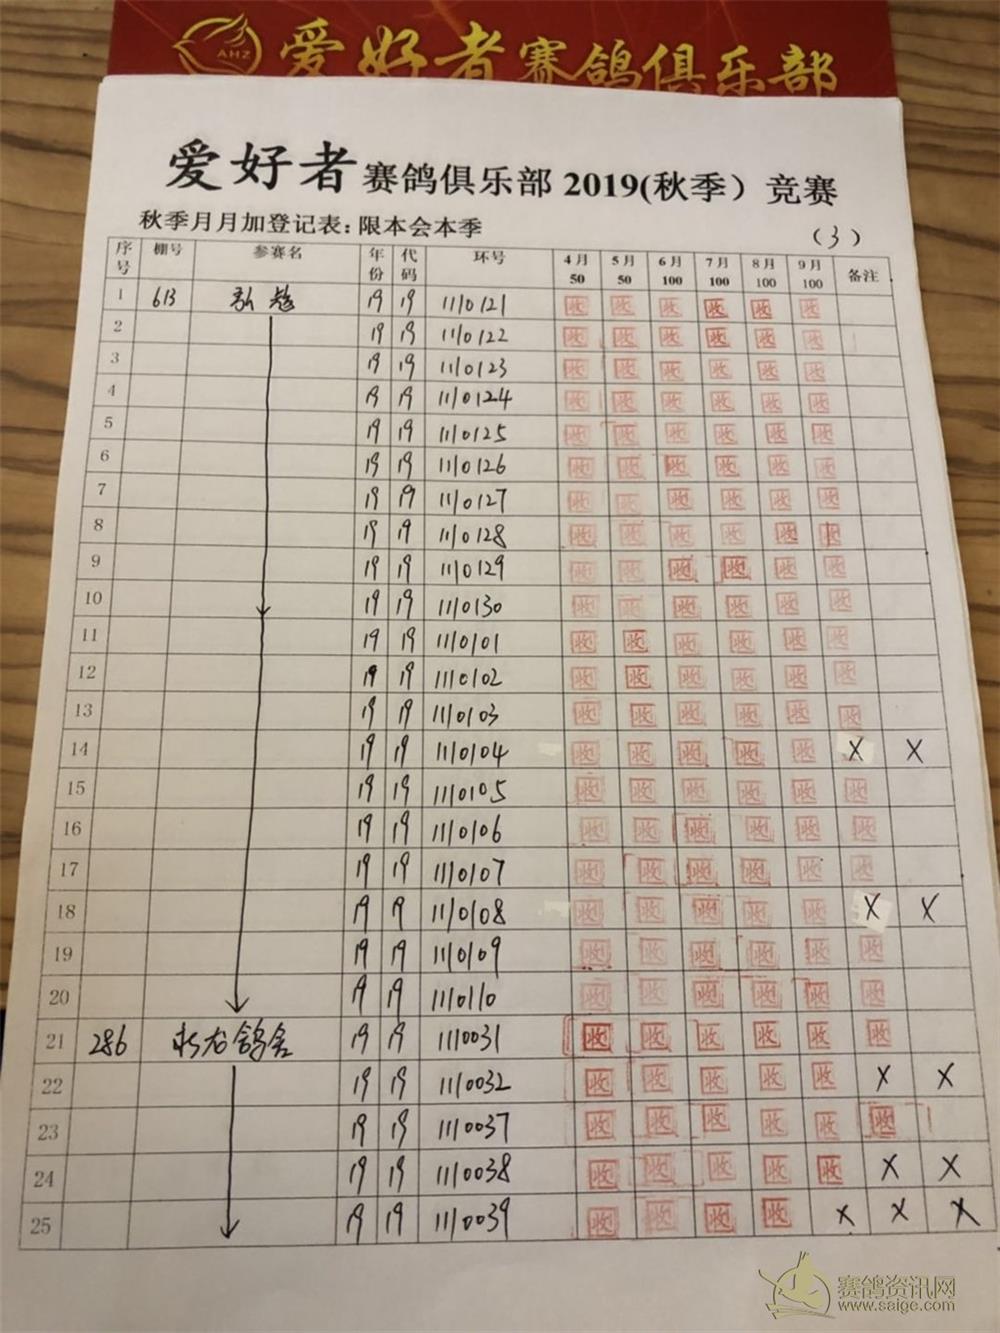 AHZ 爱好者赛鸽俱乐部
爱好者赛鸽俱乐部2019(秋季）竞赛
秋季月月加登记表：限本会本季 （3）
序号 棚号 参赛名 年份 代码 环号 4月50 5月50 6月100 7月100 8月100 9月100 备注
1 613 19 19 1110121 收 收 收 收 收 收
2 19 19 1110122 收 收 收 收 收 收
3 19 19 1110123 收 收 收 收 收 收
4 19 19 1110124 收 收 收 收 收 收
5 19 19 1110125 收 收 收 收 收 收
6 19 19 1110126 收 收 收 收 收 收
7 19 19 1110127 收 收 收 收 收 收
8 19 19 1110128 收 收 收 收 收 收
9 19 19 1110129 收 收 收 收 收 收
10 19 19 1110130 收 收 收 收 收 收
11 19 19 1110101 收 收 收 收 收 收
12 19 19 1110102 收 收 收 收 收 收
13 19 19 1110103 收 收 收 收 收 收
14 19 19 1110104 收 收 收 收 收 X X
15 19 19 1110105 收 收 收 收 收 收
16 19 19 1110106 收 收 收 收 收 收
17 19 19 1110107 收 收 收 收 收 收
18 19 19 1110108 收 收 收 收 收 X X
19 19 19 1110109 收 收 收 收 收 收
20 19 19 1110110 收 收 收 收 收 收
21 286 龙鸽舍 19 19 1110031 收 收 收 收 收 收
22 19 19 1110032 收 收 收 收 收 X X
23 19 19 1110037 收 收 收 收 收 收
24 19 19 1110038 收 收 收 收 收 X X
25 19 19 1110039 收 收 收 收 X X X
赛鸽资讯网
www.saige.com